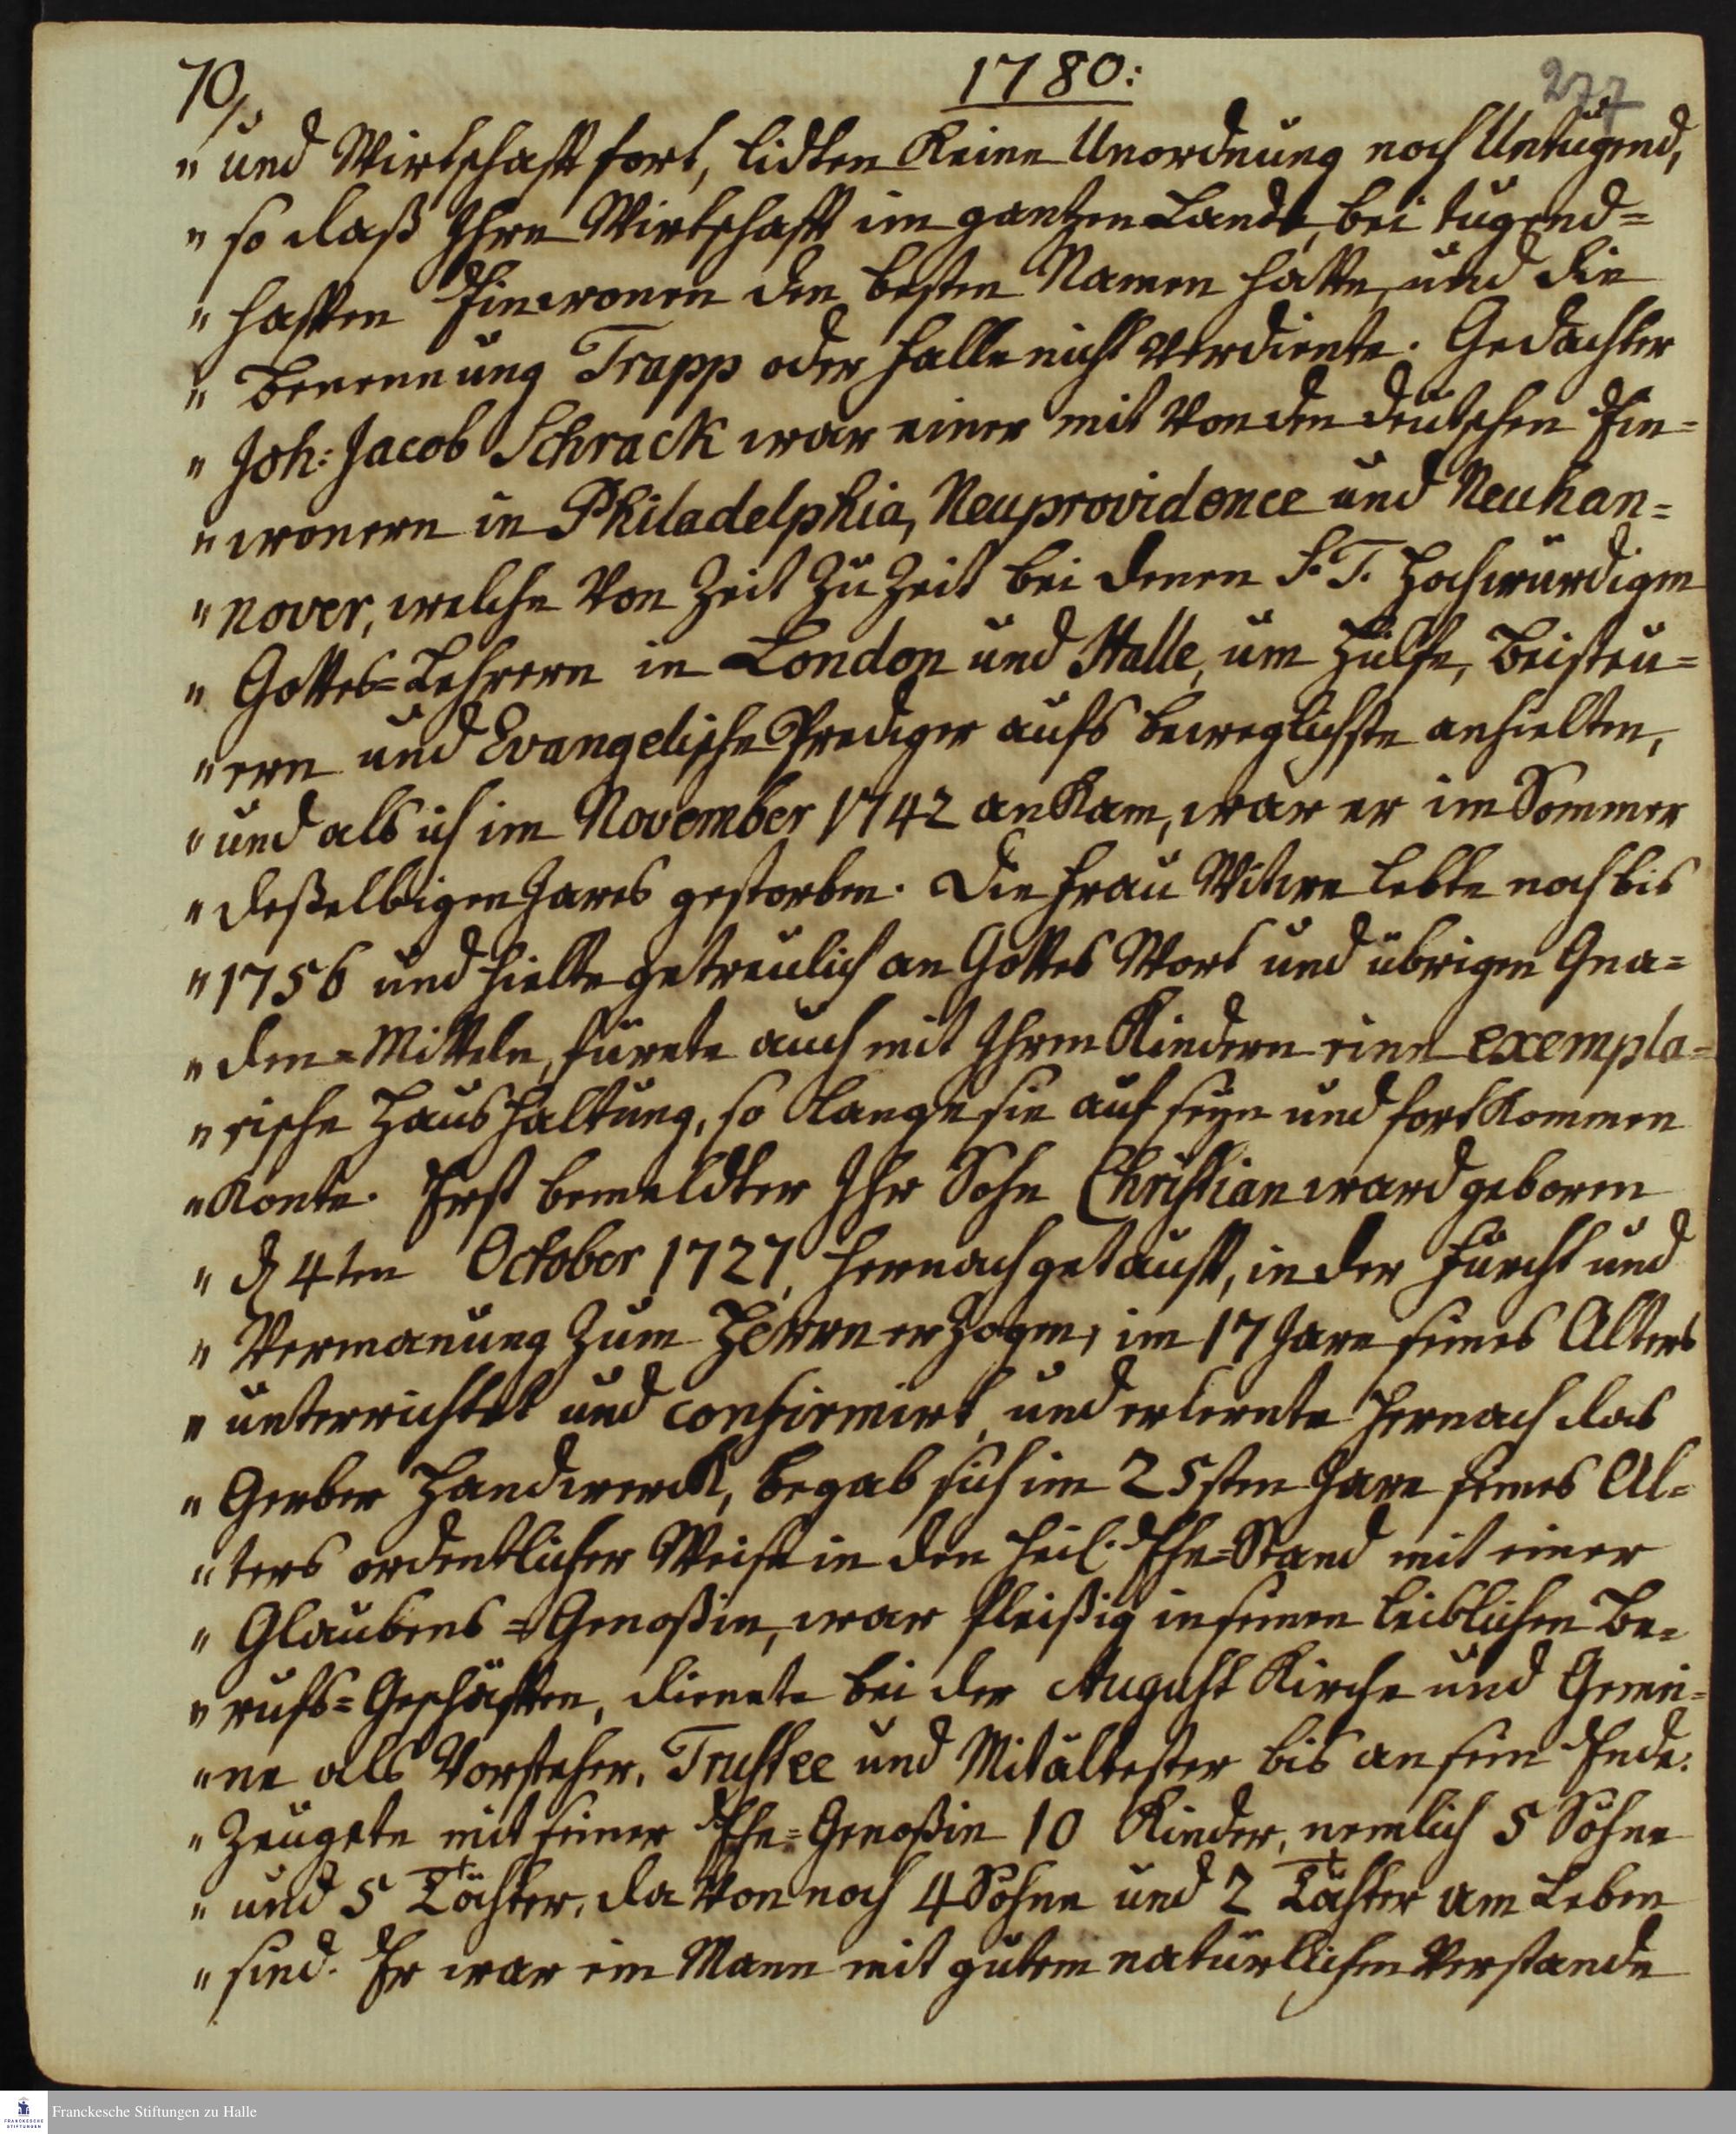 70/
1780:
277
" und Wirtschafft fort, lidten Keine Unordnung noch Untugend,
" so daß Ihre Wirtschafft im gantzen Lande, bei tugend=
" hafften Einwonern den besten Namen hatte, und die
" Benennung Trapp oder Falle nicht verdiente. Gedachter
" Joh: Jacob Schrack war einer mit von den deutschen Ein=
" wonern in Philadelphia, Neuprovidence und Neuhan=
" nover, welche von Zeit zu Zeit bei denen S. T. Hochwürdigen
" Gottes=Lehrern in London und Halle, um Hülfe, Beisteu=
" ern und Evangelische Prediger aufs beweglichste anhielten,
" und als ich im November 1742 anKam, war er im Sommer
" deßelbigen Jares gestorben. Die Frau Witwe lebte noch bis
" 1756 und hielte getreulich an Gottes Wort und übrigen Gna=
" den=Mitteln, fürete auch mit Ihren Kindern eine exempla=
" rische Haushaltung, so lange sie auf seyn und fortKommen
" Konte. Erst bemeldter Ihr Sohn Christian ward geboren
" d 4ten October 1727, hernach getaufft, in der Furcht und
" Vermanung zum HErrn erzogen, im 17 Jare seines Alters
" unterrichtet und confirmirt, und erlernte hernach das
" Gerber Handwerck, begab sich im 25sten Jare seines Al=
" ters ordentlicher Weise in den heil. Ehe=Stand mit einer
" Glaubens=Genoßin, war fleißig in seinen leiblichen Be=
" rufs=Geschäfften, dienete bei der August Kirche und Gemei=
" ne als Vorsteher, Trustee und Mitältester bis an sein Ende.
" Zeugete mit seiner Ehe=Genoßin 10 Kinder, nemlich 5 Söhne
" und 5 Töchter, davon noch 4 Söhne und 2 Töchter am Leben
" sind. Er war ein Mann mit gutem natürlichen Verstande
FRANCKESCHE
STIFTUNGEN
Franckesche Stiftungen zu Halle